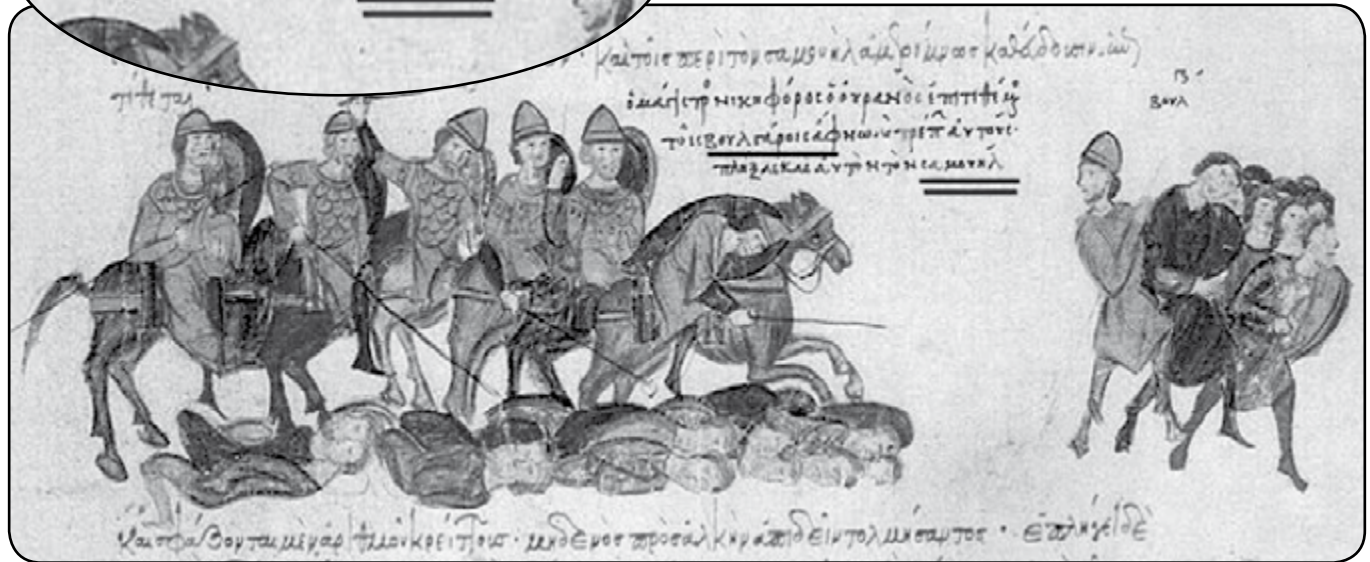 καὶ τοῖς περὶ τὸν σαμουὴλ
τίθεται
ὁ μάγιστρο νικηφόρος ὁ οὐρανὸς ἐπιτιθέμ
τοῖς βουλγάροις ἄφνω κ τρέπει αὐτοὺς·
πλήξας καὶ αὐτὸν τὸν σαμουήλ
βουλ
καὶ σφάζονται μὲν ἀριθμοῦ κρείττους · μηδενὸς πρὸς ἀλκὴν ἀπιδεῖν τολμήσαντος · ἐπλήγει δὲ